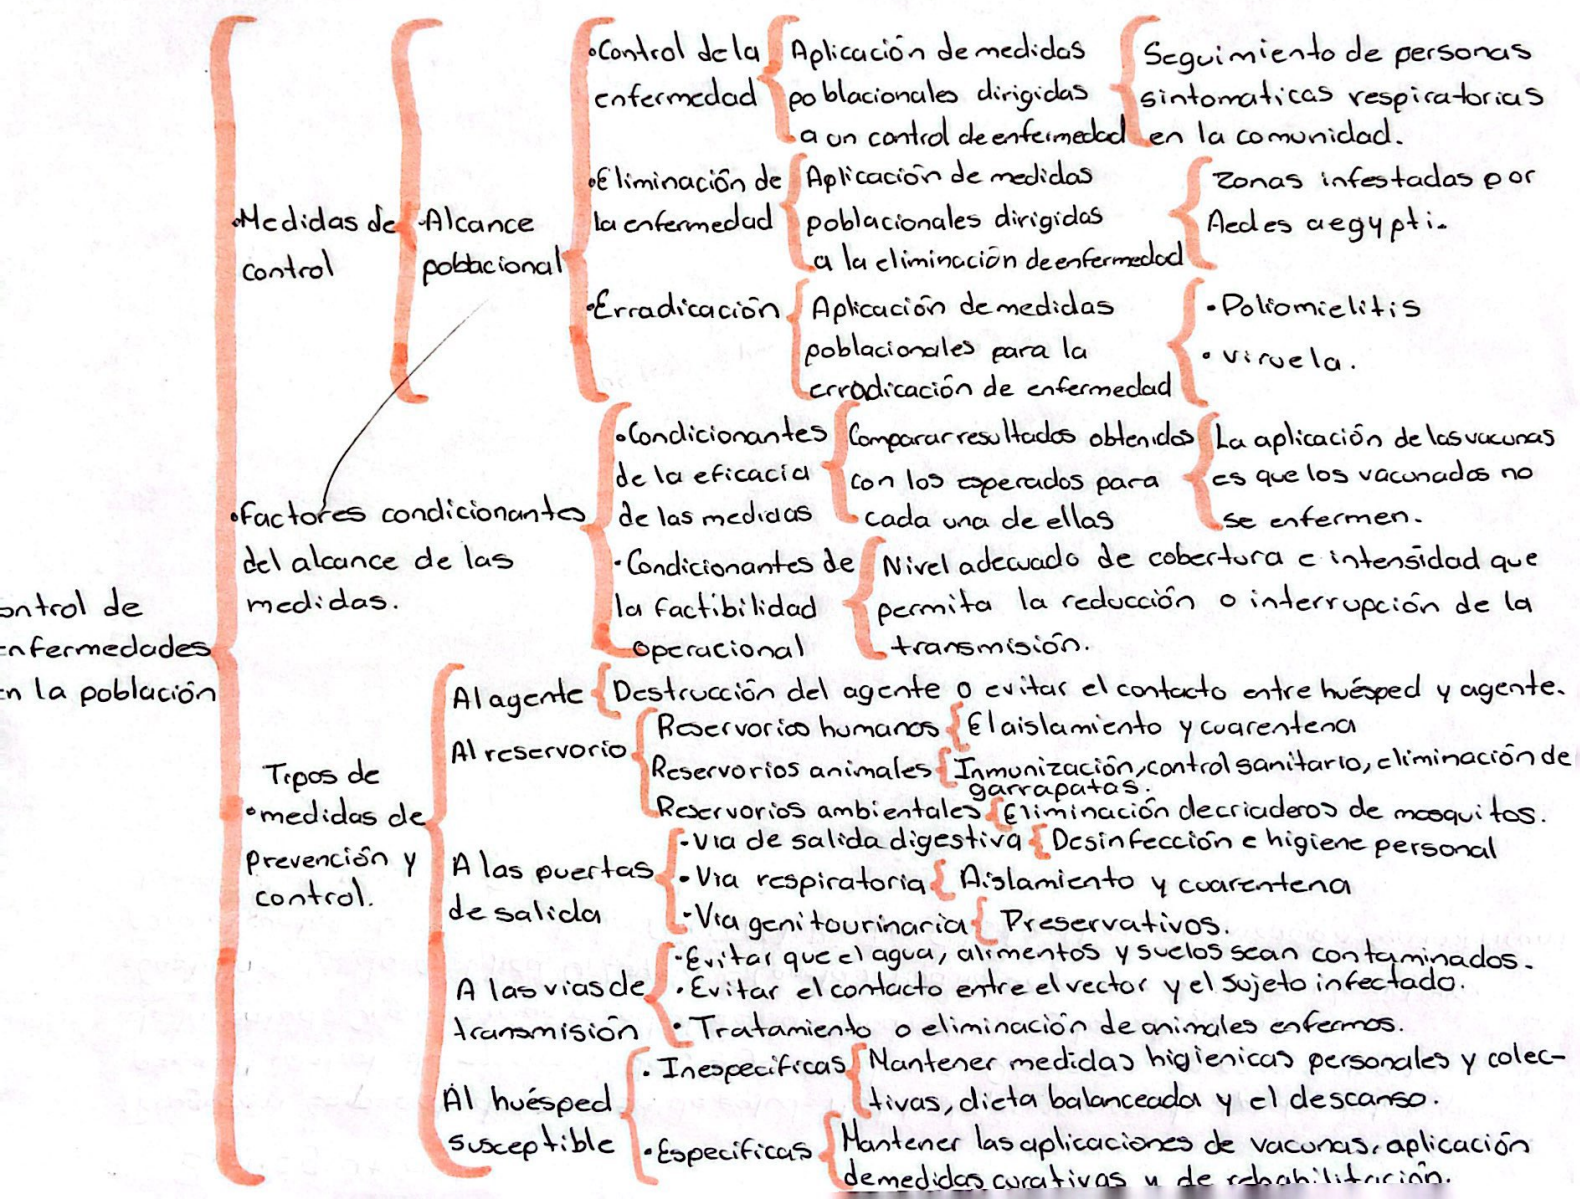 ontrol de
enfermedades
en la población
•Medidas de
control
•Alcance
poblacional
•Control de la
enfermedad
Aplicación de medidas
poblacionales dirigidas
a un control de enfermedad
Seguimiento de personas
sintomaticas respiratorias
en la comunidad.
•Eliminación de
la enfermedad
Aplicación de medidas
poblacionales dirigidas
a la eliminación de enfermedad
Zonas infestadas por
Aedes aegypti.
•Erradicación
Aplicación de medidas
poblacionales para la
erradicación de enfermedad
•Poliomielitis
•viruela.
•factores condicionantes
del alcance de las
medidas.
•Condicionantes
de la eficacia
de las medidas
Comparar resultados obtenidos
con los esperados para
cada una de ellas
La aplicación de las vacunas
es que los vacunados no
se enfermen.
•Condicionantes de
la factibilidad
operacional
Nivel adecuado de cobertura e intensidad que
permita la reducción o interrupción de la
transmisión.
Tipos de
•medidas de
prevención y
control.
Al agente
Destrucción del agente o evitar el contacto entre huésped y agente.
Al reservorio
Reservorios humanos
El aislamiento y cuarentena
Reservorios animales
Inmunización, control sanitario, eliminación de
garrapatas.
Reservorios ambientales
Eliminación de criaderos de mosquitos.
A las puertas
de salida
•via de salida digestiva
Desinfección e higiene personal
•Via respiratoria
Aislamiento y cuarentena
•Via genitourinaria
Preservativos.
A las vias de
transmisión
•Evitar que el agua, alimentos y suelos sean contaminados.
•Evitar el contacto entre el vector y el sujeto infectado.
•Tratamiento o eliminación de animales enfermos.
Al huésped
susceptible
•Inespecificas
Mantener medidas higienicas personales y colec-
tivas, dieta balanceada y el descanso.
•Especificas
Mantener las aplicaciones de vacunas, aplicación
de medidas curativas y de rehabilitación.